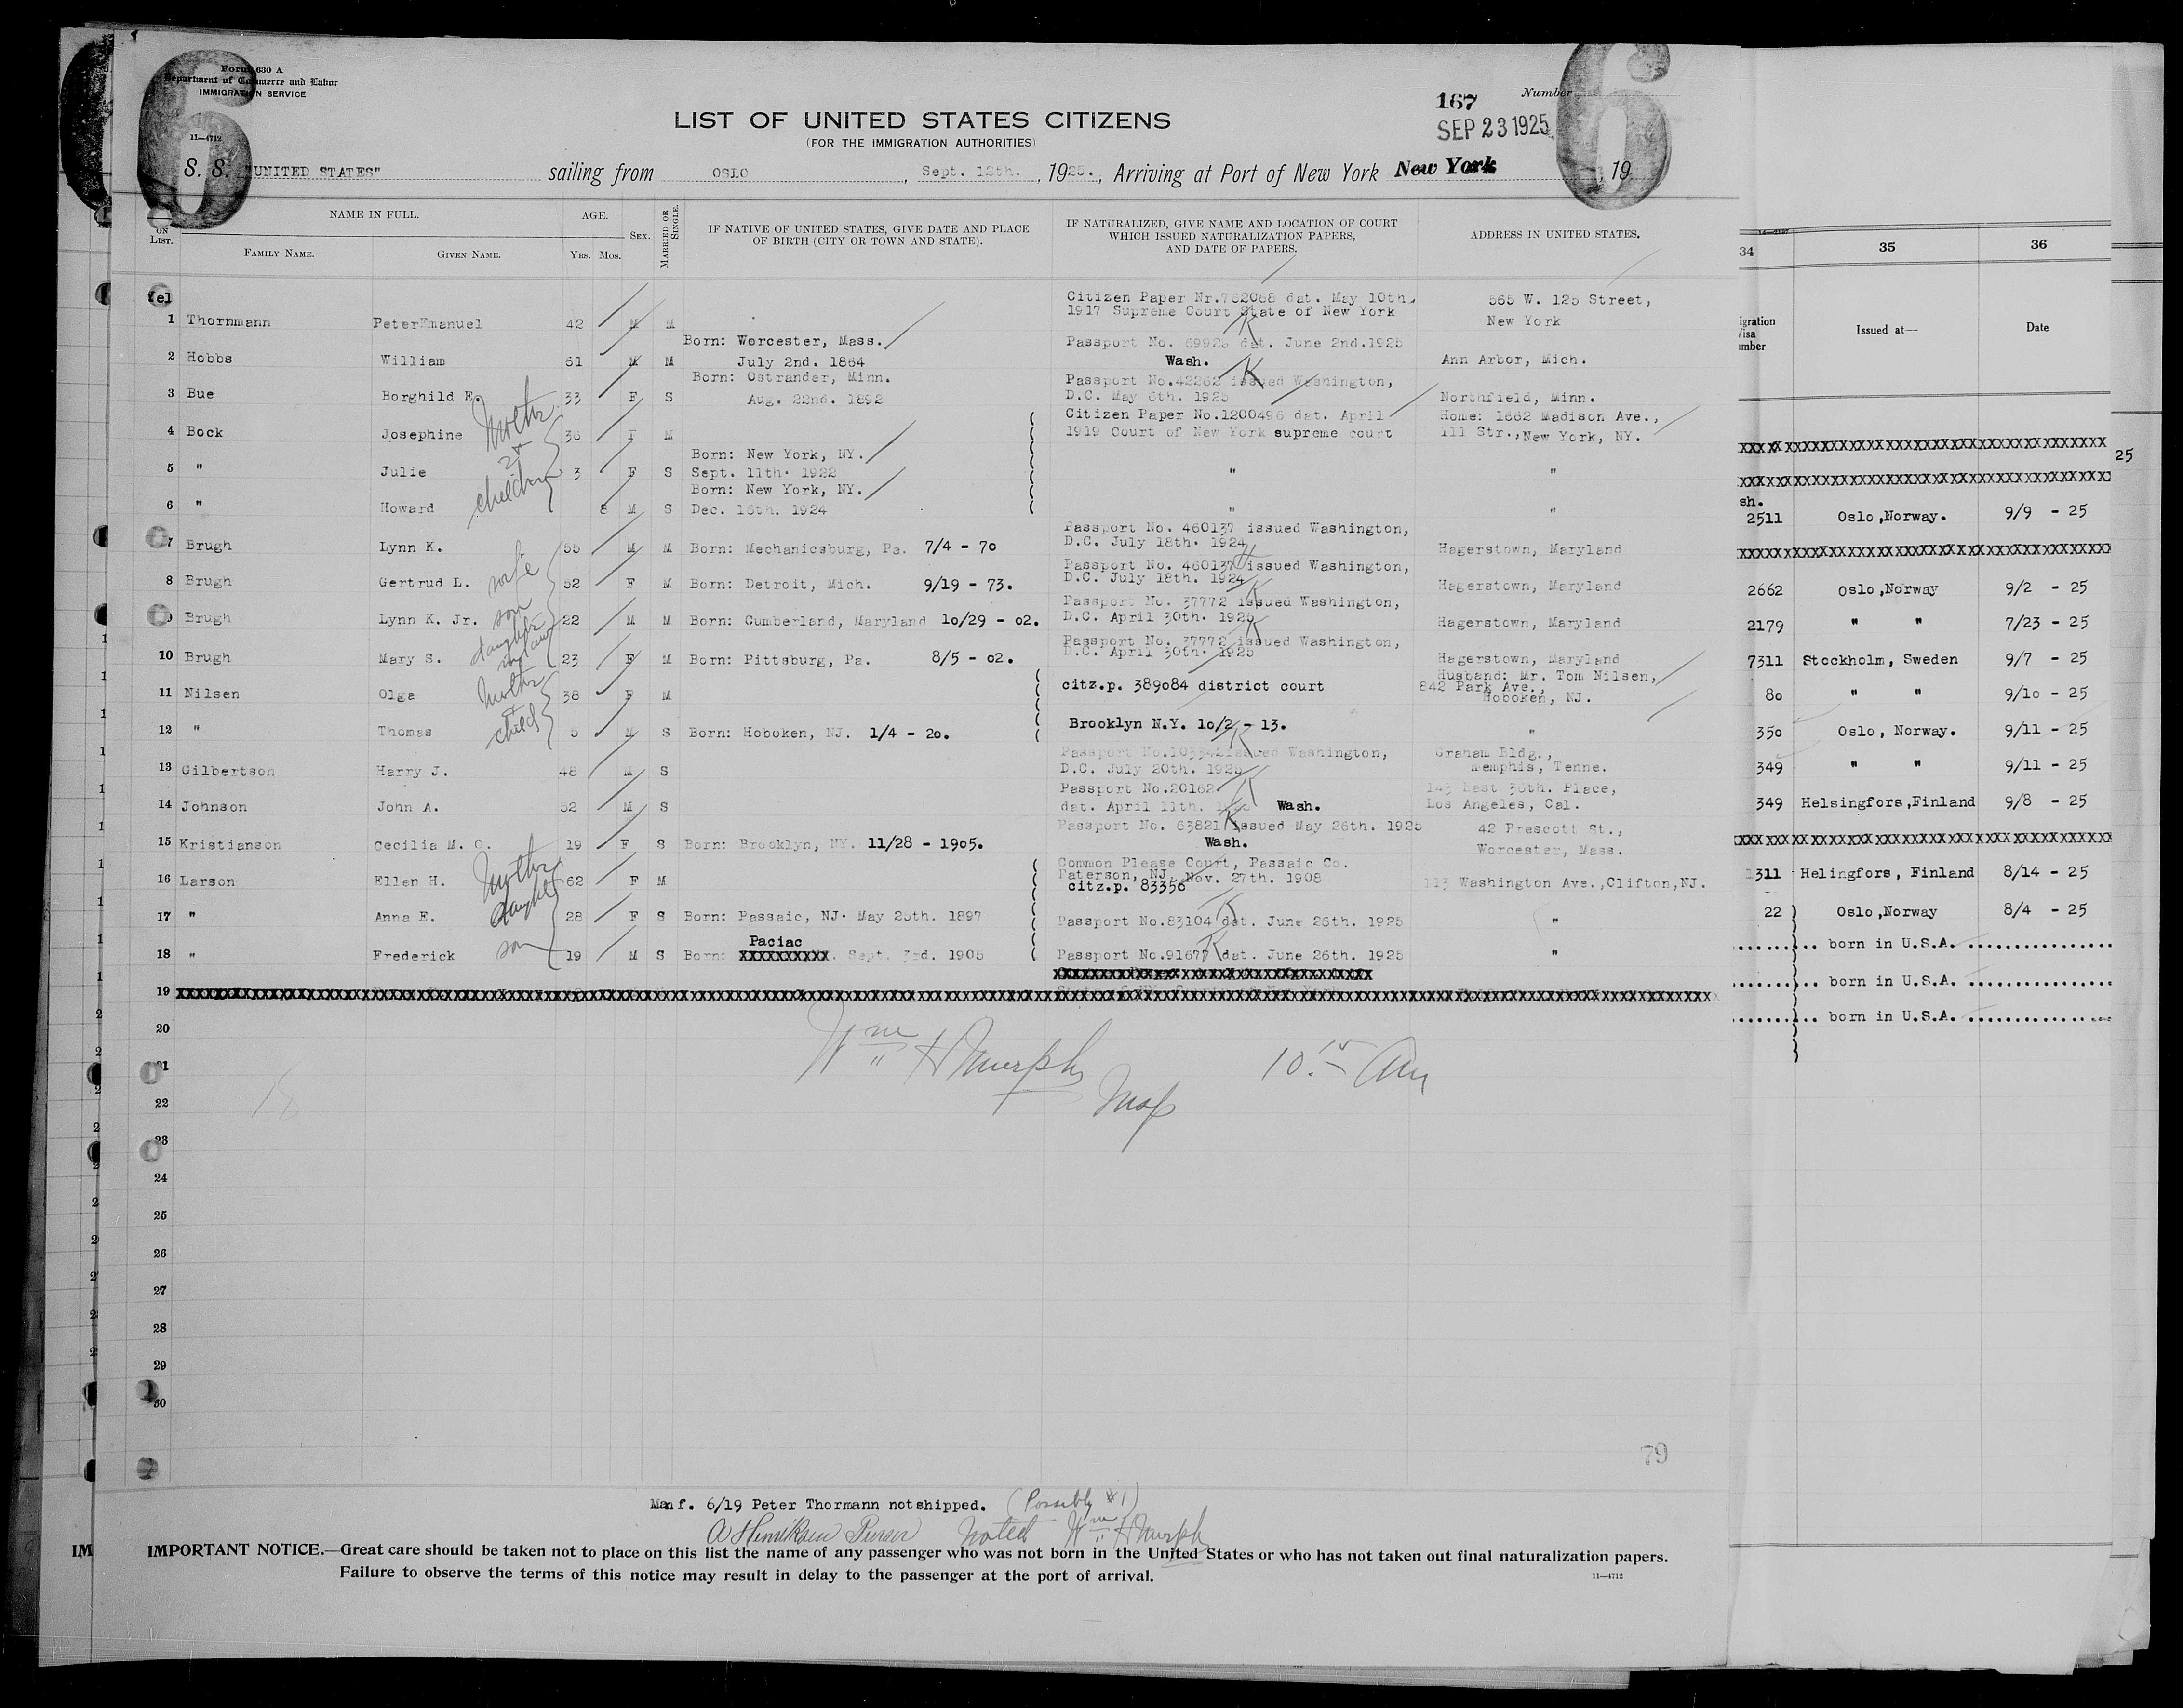 Form 630 A
Department of Commerce and Labor
IMMIGRATION SERVICE
11—4712
6
6
167
Number
SEP 23 1925
LIST OF UNITED STATES CITIZENS
(FOR THE IMMIGRATION AUTHORITIES)
S. S. "UNITED STATES" sailing from OSLO, Sept. 12th., 1925., Arriving at Port of New York New York, 19
ON LIST.
NAME IN FULL.
FAMILY NAME.
GIVEN NAME.
AGE.
YRS. MOS.
SEX.
MARRIED OR SINGLE.
IF NATIVE OF UNITED STATES, GIVE DATE AND PLACE
OF BIRTH (CITY OR TOWN AND STATE).
IF NATURALIZED, GIVE NAME AND LOCATION OF COURT
WHICH ISSUED NATURALIZATION PAPERS,
AND DATE OF PAPERS.
ADDRESS IN UNITED STATES.
Citizen Paper Nr.762068 dat. May 10th. 565 W. 125 Street,
1 Thornmann PeterEmanuel 42 M M 1917 Supreme Court State of New York New York
Born: Worcester, Mass. Passport No. 69926 dat. June 2nd.1925
2 Hobbs William 61 M M July 2nd. 1864 Wash. Ann Arbor, Mich.
Born: Ostrander, Minn. Passport No.42262 issued Washington,
3 Bue Borghild E. 33 F S Aug. 22nd. 1892 D.C. May 6th. 1925 Northfield, Minn.
Mother
2
children
Citizen Paper No.1200496 dat. April Home: 1662 Madison Ave.,
4 Bock Josephine 36 F M 1919 Court of New York supreme court 111 Str.,New York, NY.
Born: New York, NY.
5 " Julie 3 F S Sept. 11th. 1922 " "
Born: New York, NY.
6 " Howard 8 M S Dec. 16th. 1924 " "
Passport No. 460137 issued Washington,
7 Brugh Lynn K. 55 M M Born: Mechanicsburg, Pa. 7/4 - 70 D.C. July 18th. 1924 Hagerstown, Maryland
Passport No. 460137 issued Washington,
8 Brugh Gertrud L. wife 52 F M Born: Detroit, Mich. 9/19 - 73. D.C. July 18th. 1924 Hagerstown, Maryland
Passport No. 37772 issued Washington,
9 Brugh Lynn K. Jr. son 22 M M Born: Cumberland, Maryland 10/29 - 02. D.C. April 30th. 1925 Hagerstown, Maryland
Passport No. 37772 issued Washington,
10 Brugh Mary S. daughter in law 23 F M Born: Pittsburg, Pa. 8/5 - 02. D.C. April 30th. 1925 Hagerstown, Maryland
Husband: Mr. Tom Nilsen,
11 Nilsen Olga Mother 38 F M citz.p. 389084 district court 842 Park Ave.,
Hoboken, NJ.
12 " Thomas child 5 M S Born: Hoboken, NJ. 1/4 - 20. Brooklyn N.Y. 10/2 - 13. "
Passport No.103342 issued Washington, Graham Bldg.,
13 Gilbertson Harry J. 48 M S D.C. July 20th. 1925 Memphis, Tenne.
Passport No.20162 143 East 36th. Place,
14 Johnson John A. 52 M S dat. April 11th. Wash. Los Angeles, Cal.
Passport No. 63821 issued May 26th. 1925 42 Prescott St.,
15 Kristianson Cecilia M. O. 19 F S Born: Brooklyn, NY. 11/28 - 1905. Wash. Worcester, Mass.
Common Please Court, Passaic Co.
Paterson, NJ. Nov. 27th. 1908
16 Larson Ellen H. Mother 62 F M citz.p. 83356 113 Washington Ave.,Clifton,NJ.
17 " Anna E. daught 28 F S Born: Passaic, NJ. May 25th. 1897 Passport No.83104 dat. June 26th. 1925 "
Paciac
18 " Frederick son 19 M S Born: XXXXXXXXXX. Sept. 3rd. 1905 Passport No.91677 dat. June 26th. 1925 "
19
20
Wm H Murphy
Insp
10.15 Am
21
22
23
24
25
26
27
28
29
30
79
Manf. 6/19 Peter Thormann notshipped. (Possibly #1)
A Henriksen Purser Noted Wm H Murph
IMPORTANT NOTICE.—Great care should be taken not to place on this list the name of any passenger who was not born in the United States or who has not taken out final naturalization papers.
Failure to observe the terms of this notice may result in delay to the passenger at the port of arrival.
11—4712
IM
34 35 36
igration
Visa
umber
Issued at—
Date
25
sh.
2511 Oslo,Norway. 9/9 - 25
2662 Oslo,Norway 9/2 - 25
2179 " " 7/23 - 25
7311 Stockholm, Sweden 9/7 - 25
80 " " 9/10 - 25
350 Oslo, Norway. 9/11 - 25
349 " " 9/11 - 25
349 Helsingfors,Finland 9/8 - 25
1311 Helingfors, Finland 8/14 - 25
22 Oslo,Norway 8/4 - 25
born in U.S.A.
born in U.S.A.
born in U.S.A.